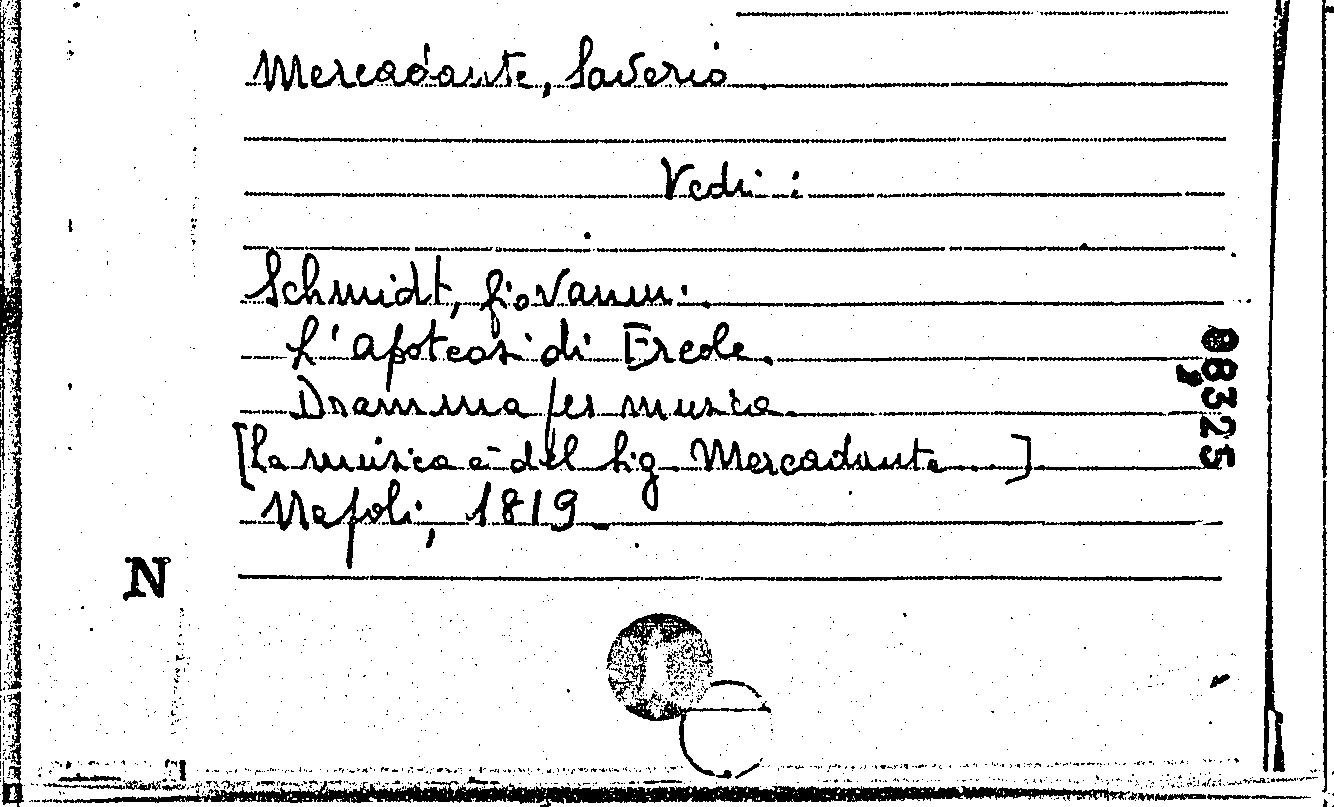 Mercadante, Saverio
Vedi:
Schmidt, Giovanni.
L'apoteosi di Ercole.
Dramma per musica.
[La musica è del Sig. Mercadante...]
Napoli, 1819.
N
08325